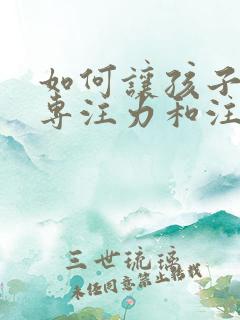 如何讓孩子
專注力和注
三世琉璃
未经同意禁止转载